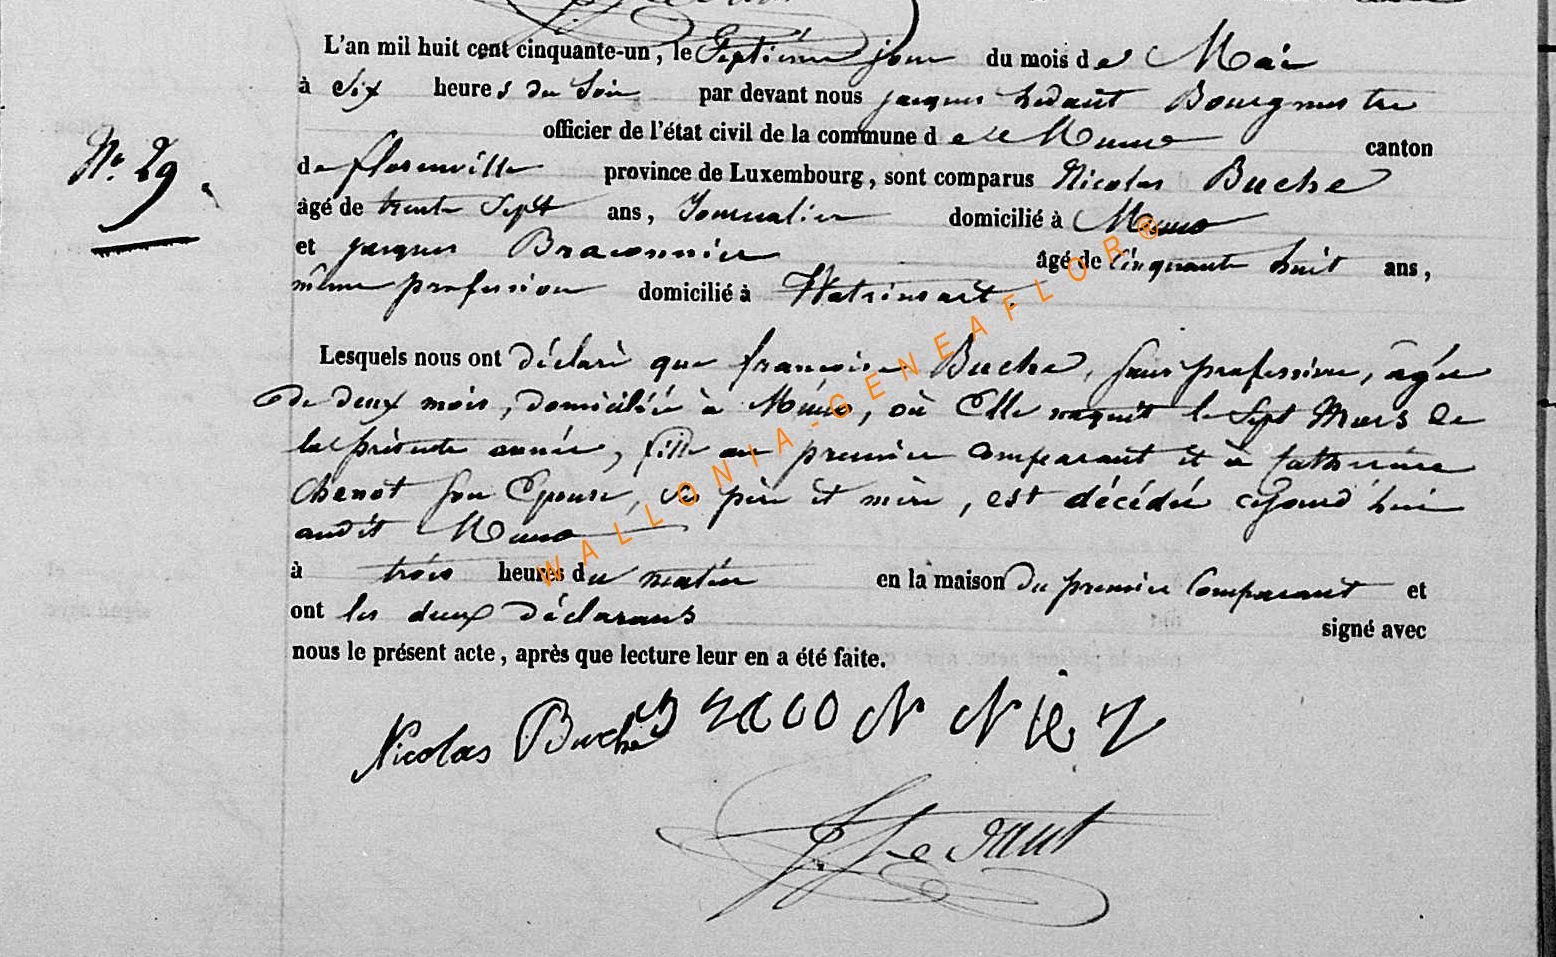 L'an mil huit cent cinquante-un, le Septième jour du mois de Mai
N.° 29
à Six heures du Soir par devant nous jacques hedaut Bourgmestre
officier de l'état civil de la commune d e Muno canton
de florenville province de Luxembourg, sont comparus Nicolas Buche
âgé de trente Sept ans, Journalier domicilié à Muno
et jacques Braconnier âgé de Cinquante huit ans,
même profession domicilié à Watrinsart.
Lesquels nous ont déclaré que francoise Buche, sans profession, âgée
de deux mois, domiciliée à Muno, où Elle naquit le Sept Mars de
la présente année, fille au premier Comparant et à Catherine
Chenot son Epouse, ses père et mère, est décédée cejourd'hui
audit Muno
à trois heures du matin en la maison du premier Comparant et
ont les deux déclarans signé avec
nous le présent acte, après que lecture leur en a été faite.
Nicolas Buche
WALLONIA-GENEAFLOR®